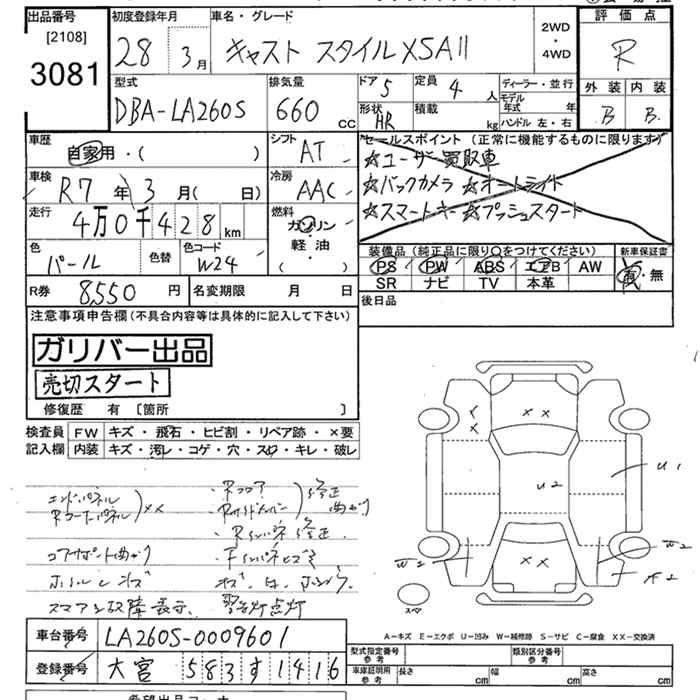 出品番号
[2108]
3081
初度登録年月
28 3月
車名・グレード
キャスト スタイルXSAⅡ
2WD
・
4WD
評価点
R
外装 内装
B B
型式
DBA-LA260S
排気量
660 cc
ドア 5
定員 4 人
形状 HR
積載 kg
ディーラー・並行
モデル年式 年
ハンドル 左・右
車歴
自家用・( )
シフト
AT
車検
R7年3月( 日)
冷房
AAC
走行
4万0千428km
燃料
ガソリン
・
軽油
( )
色
パール
色替
色コード
W24
セールスポイント (正常に機能するものに限ります)
☆ユーザー買取車
☆バックカメラ ☆オートライト
☆スマートキー ☆プッシュスタート
装備品 (純正品に限り〇をつけてください)
新車保証書
PS PW ABS エアB AW
SR ナビ TV 本革
有・無
R券 8550円
名変期限 月 日
後日品
注意事項申告欄(不具合内容等は具体的に記入して下さい)
ガリバー出品
売切スタート
修復歴 有 [箇所 ]
検査員 FW キズ・飛石・ヒビ割・リペア跡・×要
記入欄 内装 キズ・汚レ・コゲ・穴・スレ・キレ・破レ
エンドパネル
Rコーナーパネル ××
・Rフロア
・Rサイドメンバー 修正 曲がり
・Rインパネ 修正
コアサポート曲がり
Fインパネヒズミ
ホイールキズ
スマアシ故障表示、 警告灯点灯
××
××
××
U1
U2
W2
W2
A2
スペ
A-キズ E-エクボ U-凹み W-補修跡 S-サビ C-腐食 XX-交換済
車台番号 LA260S-0009601
登録番号 大宮 583す1416
型式指定番号
参考
類別区分番号
参考
車庫証明用
参考
長さ cm
幅 cm
高さ cm